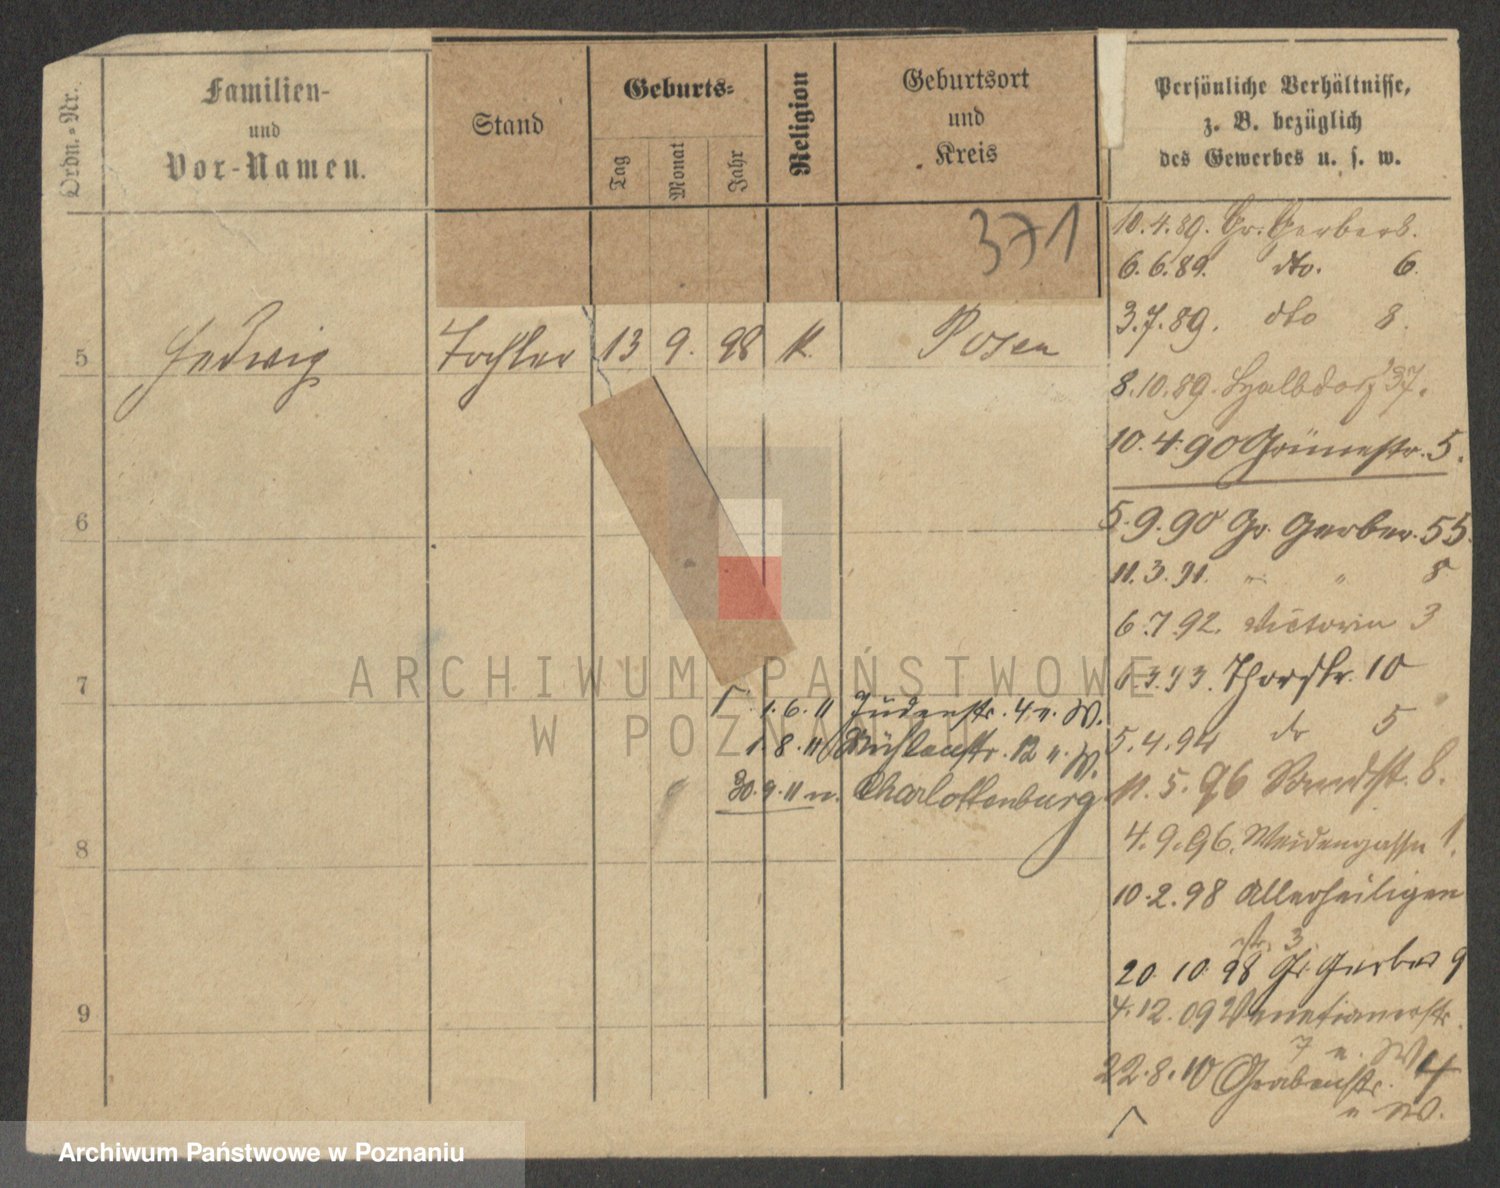 Ordn.-Nr.
Familien-
und
Vor-Namen.
Stand
Geburts-
Tag
Monat
Jahr
Religion
Geburtsort
und
Kreis
Persönliche Verhältnisse,
z. B. bezüglich
des Gewerbes u. s. w.
371
5 Hedwig Tochter 13 9. 98 K. Posen
6
7
8
9
1.6.11 Judenstr. 4 u. W.
1.8.11 Mühlenstr. 12 u. W.
30.9.11 n. Charlottenburg
10.4.89. Gr. Gerber 8.
6.6.89. dto. 6
3.7.89. dto 8.
8.10.89. Halbdorf 37.
10.4.90 Grünestr. 5.
5.9.90 Gr. Gerber. 55.
11.3.91. " " 8
6.7.92. Victoria 3
.3.93. Thorstr. 10
5.4.94 do 5
11.5.96 8.
4.9.96. Weidengasse 1.
10.2.98 Allerheiligen
str. 3
20.10.98 Gr. Gerber 9
4.12.09 Venetianerstr.
7 u. W
22.8.10 Grabenstr. 4
u W.
ARCHIWUM PAŃSTWOWE
W POZNANIU
Archiwum Państwowe w Poznaniu